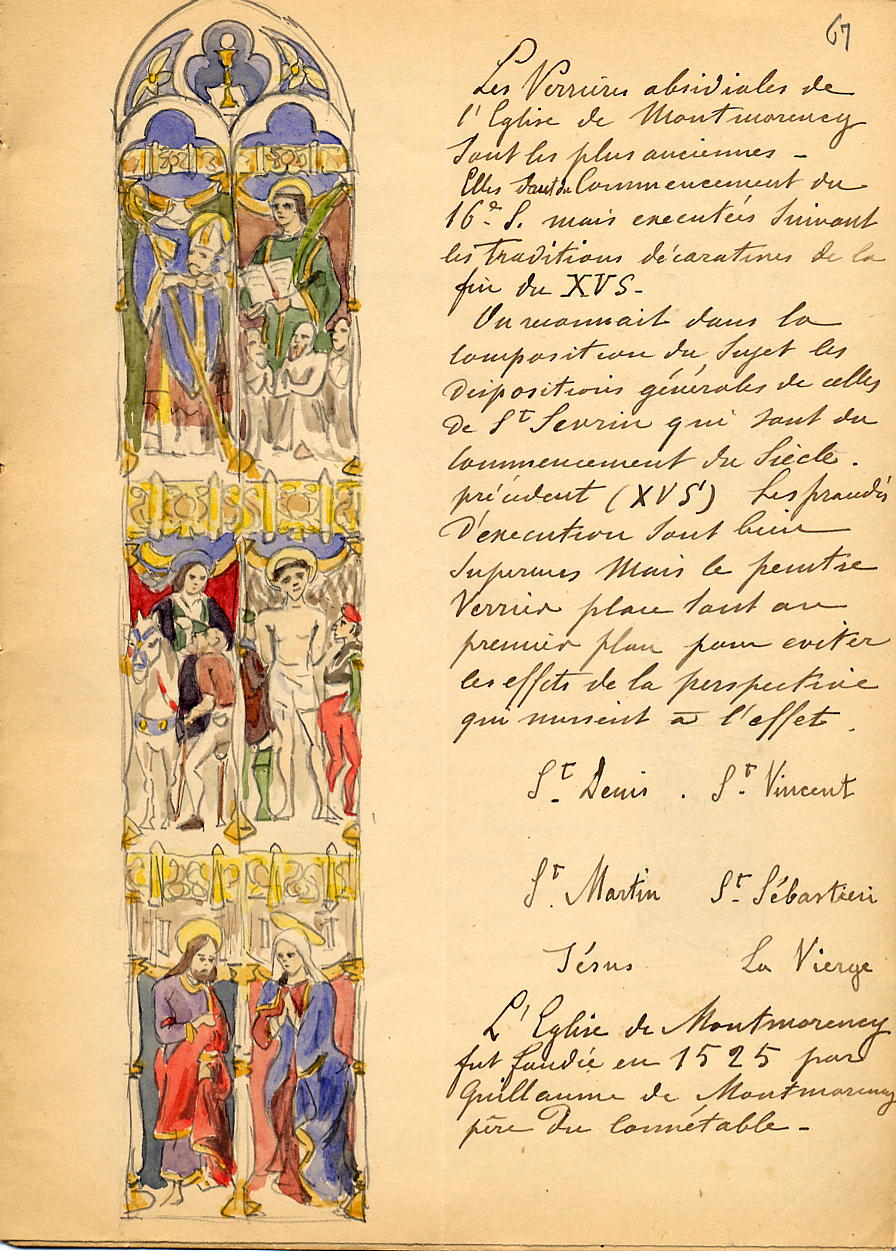 67
Les Verrières absidiales de
l'Eglise de Montmorency
sont les plus anciennes -
Elles sont du Commencement du
16e S. mais executées suivant
les traditions décoratives de la
fin du XVS -
On reconnait dans la
composition du sujet les
dispositions générales de celles
de St Sevrin qui sont du
commencement du Siècle.
précédent (XVS) Les procédés
d'execution sont bien
Mais le peintre
Verrier place tout au
premier plan pour eviter
les effets de la perspective
qui nuisent à l'effet.
St. Denis . St. Vincent
St. Martin St. Sébastien
Jésus La Vierge
L'Eglise de Montmorency
fut fondée en 1525 par
Guillaume de Montmorency
père du Connétable -